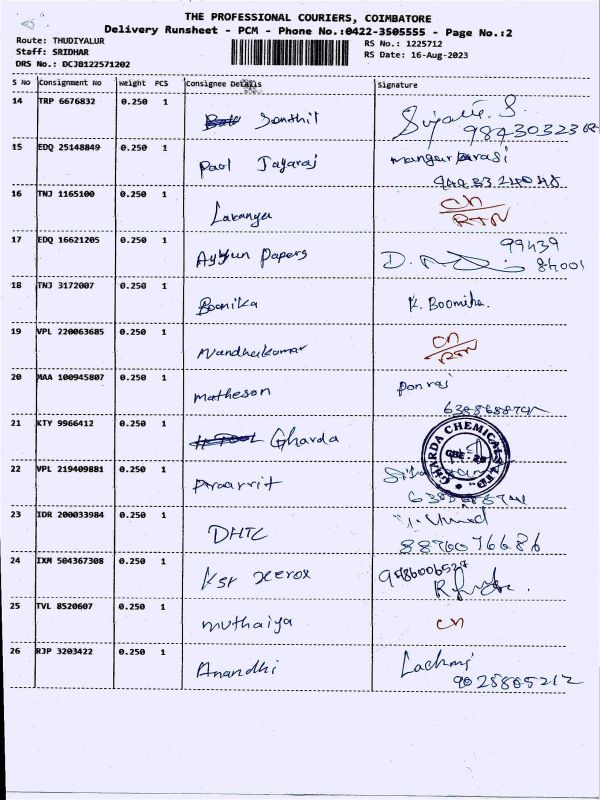 THE PROFESSIONAL COURIERS, COIMBATORE
Delivery Runsheet - PCM - Phone No.:0422-3505555 - Page No.:2
Route: THUDIYALUR
Staff: SRIDHAR
DRS No.: DCJB122571202
RS No.: 1225712
RS Date: 16-Aug-2023
S No Consignment No Weight PCS Consignee Details Signature
14 TRP 6676832 0.250 1 Senthil
15 EDQ 25148849 0.250 1 Paul Jayaraj
16 TNJ 1165100 0.250 1 Lavanya CN
RTN
17 EDQ 16621205 0.250 1 Ayyun Papers 99439
84001
18 TNJ 3172007 0.250 1 Boomika K. Boomika.
19 VPL 220063685 0.250 1 Nandhakumar CN
RTN
20 MAA 100945807 0.250 1 Matheson Ponraj
21 KTY 9966412 0.250 1 Gharda GHARDA CHEMICALS LTD.
22 VPL 219409881 0.250 1
23 IDR 200033984 0.250 1 DHTC
8876076686
24 IXM 504367308 0.250 1 KSR Xerox
25 TVL 8520607 0.250 1 Muthaiya CN
26 RJP 3203422 0.250 1 Anandhi Lachmi
9028865212